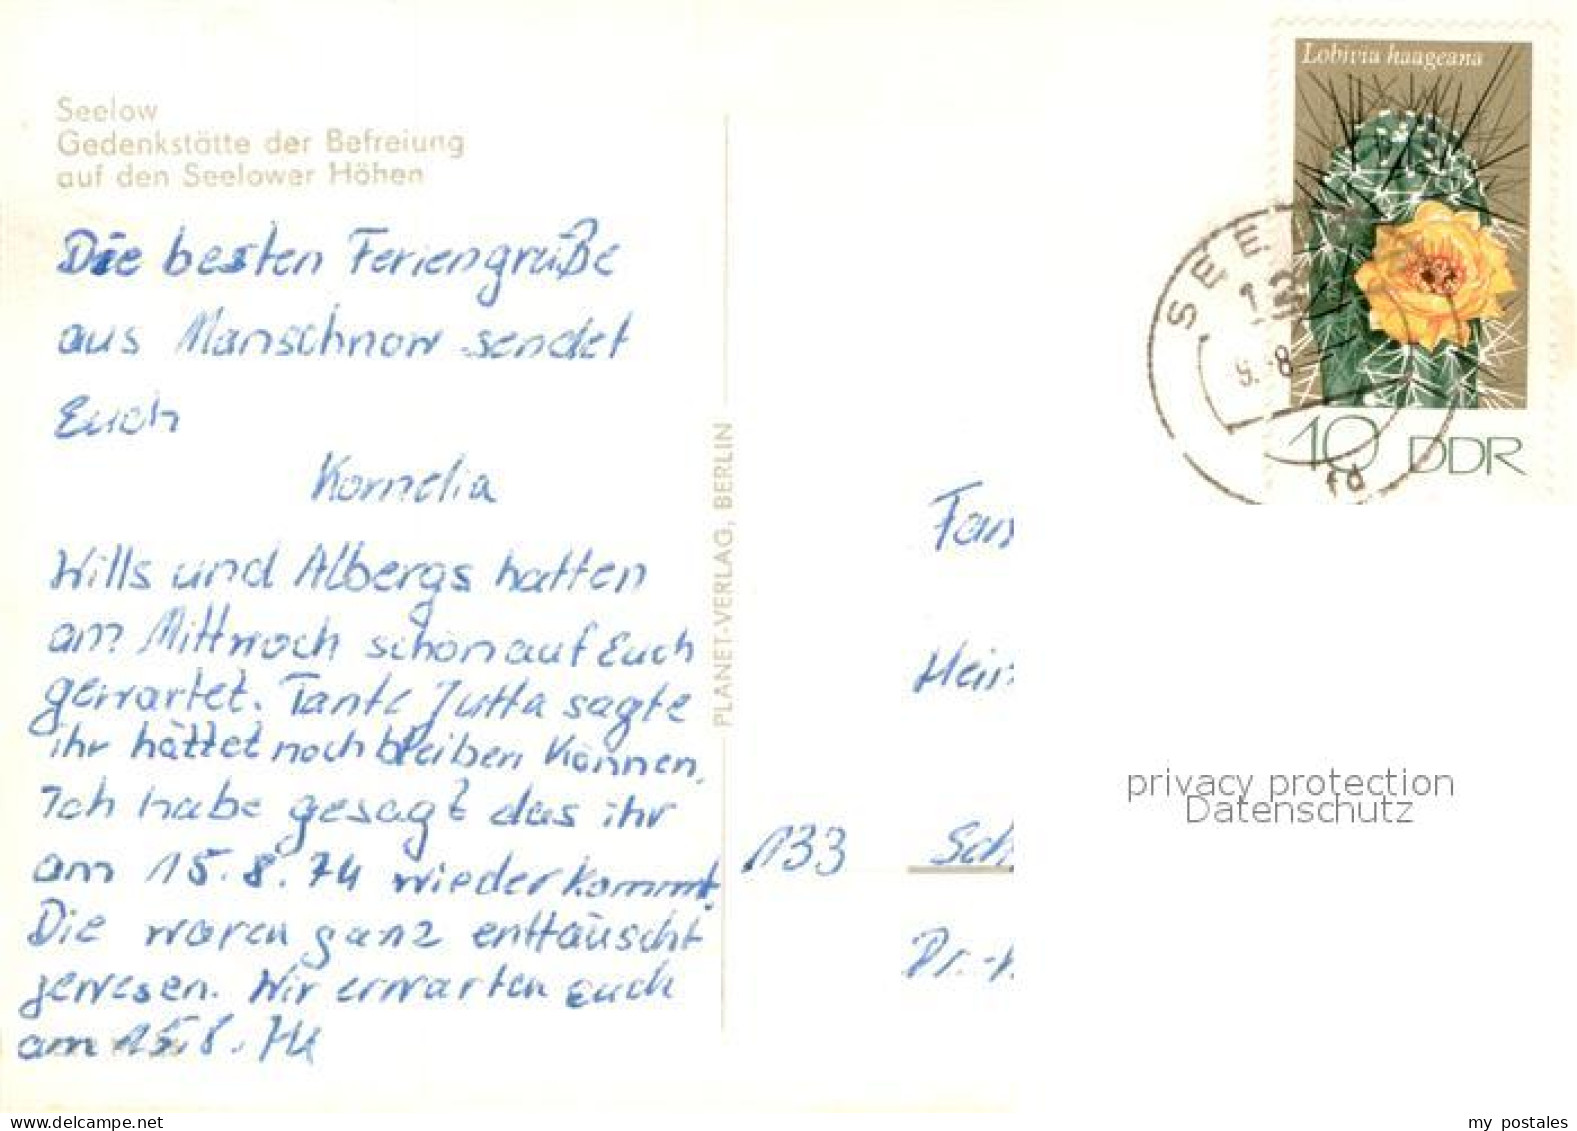 Seelow
Gedenkstätte der Befreiung
auf den Seelower Höhen
Die besten Feriengrüße
aus Manschnow sendet
Euch
Kornelia
Wills und Albergs hatten
am Mittwoch schon auf Euch
gewartet. Tante Jutta sagte
ihr hättet noch bleiben können.
Ich habe gesagt das ihr
am 15.8.74 wiederkommt.
Die waren ganz enttäuscht
gewesen. Wir erwarten Euch
am 15.8.74
PLANET-VERLAG, BERLIN
Lobivia haageana
10 DDR
SEE
9. 8
fd
Fam
Hein
133 Sch
Dr.-
privacy protection
Datenschutz
my postales